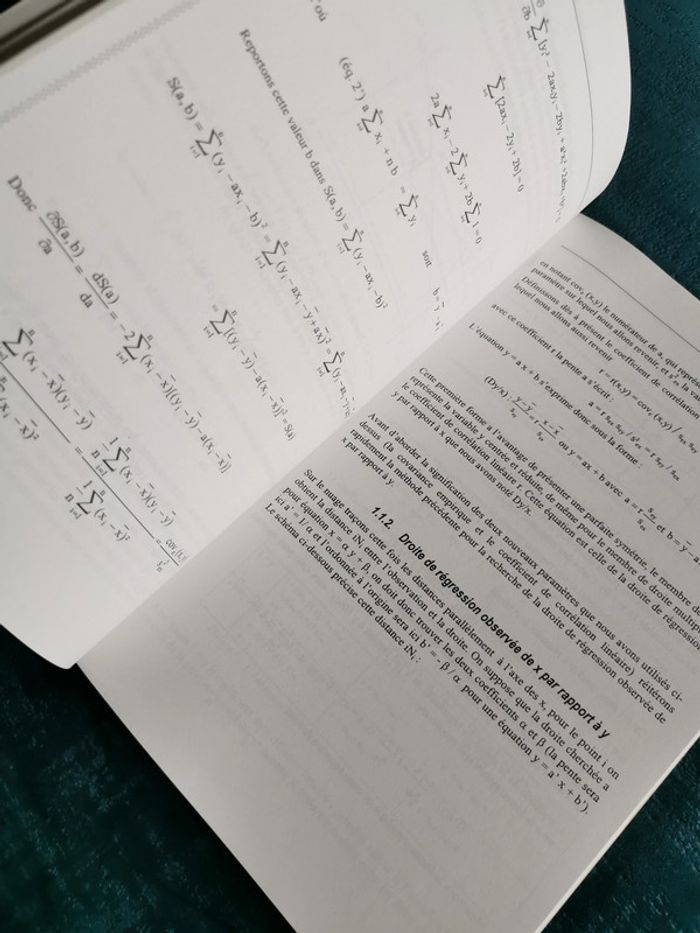 ∂/∂b Σ [y²ᵢ − 2axᵢyᵢ − 2byᵢ + a²x²ᵢ + 2abxᵢ
Σ [2axᵢ − 2yᵢ + 2b] = 0
2a Σ xᵢ − 2 Σ yᵢ + 2b Σ 1 = 0
(éq. 2') a Σ xᵢ + n b = Σ yᵢ soit b = y̅
où
Reportons cette valeur b dans S(a, b) = Σ (yᵢ − axᵢ − b)²
S(a, b) = Σ (yᵢ − axᵢ − b)² = Σ (yᵢ − axᵢ − y̅ + ax̅)² = Σ
= Σ [(yᵢ − y̅) − a(xᵢ − x̅)]² = S(a)
Donc ∂S(a, b)/∂a = dS(a)/da = −2 Σ (xᵢ − x̅)[(yᵢ − y̅) − a(xᵢ − x̅)]
Σ (xᵢ − x̅)(yᵢ − y̅) / Σ (xᵢ − x̅)² = 1/n Σ (xᵢ − x̅)(yᵢ − y̅) / 1/n Σ (xᵢ − x̅)² =
en notant covₑ (x,y) le numérateur de a, qui
paramètre sur lequel nous allons revenir, et s²ₑₓ la
Définissons dès à présent le coefficient de corrélation
lequel nous allons aussi revenir
r = r(x,y) = covₑ (x,y) / sₑₓ sₑy
avec ce coefficient r la pente a s'écrit :
a = r sₑₓ sₑy / s²ₑₓ = r sₑy / sₑₓ
L'équation y = a x + b s'exprime donc sous la forme :
(Dy/x) : (y − y̅)/sₑy = r (x − x̅)/sₑₓ ou y = ax + b avec a = r sₑy/sₑₓ et b = y̅ − a
Cette première forme a l'avantage de présenter une parfaite symétrie, le membre de
représente la variable y centrée et réduite, de même pour le membre de droite
le coefficient de corrélation linéaire r. Cette équation est celle de la droite de régression
y par rapport à x que nous avons noté Dy/x.
Avant d'aborder la signification des deux nouveaux paramètres que nous avons utilisés ci-
dessus (la covariance empirique et le coefficient de corrélation linéaire) réitérons
rapidement la méthode précédente pour la recherche de la droite de régression observée de
x par rapport à y.
1.1.2. Droite de régression observée de x par rapport à y
Sur le nuage traçons cette fois les distances parallèlement à l'axe des x, pour le point i on
obtient la distance iNᵢ entre l'observation et la droite. On suppose que la droite cherchée a
pour équation x = α y + β, on doit donc trouver les deux coefficients α et β (la pente sera
ici a' = 1/α et l'ordonnée à l'origine sera ici b' = - β / α pour une équation y = a' x + b').
Le schéma ci-dessous précise cette distance iNᵢ :